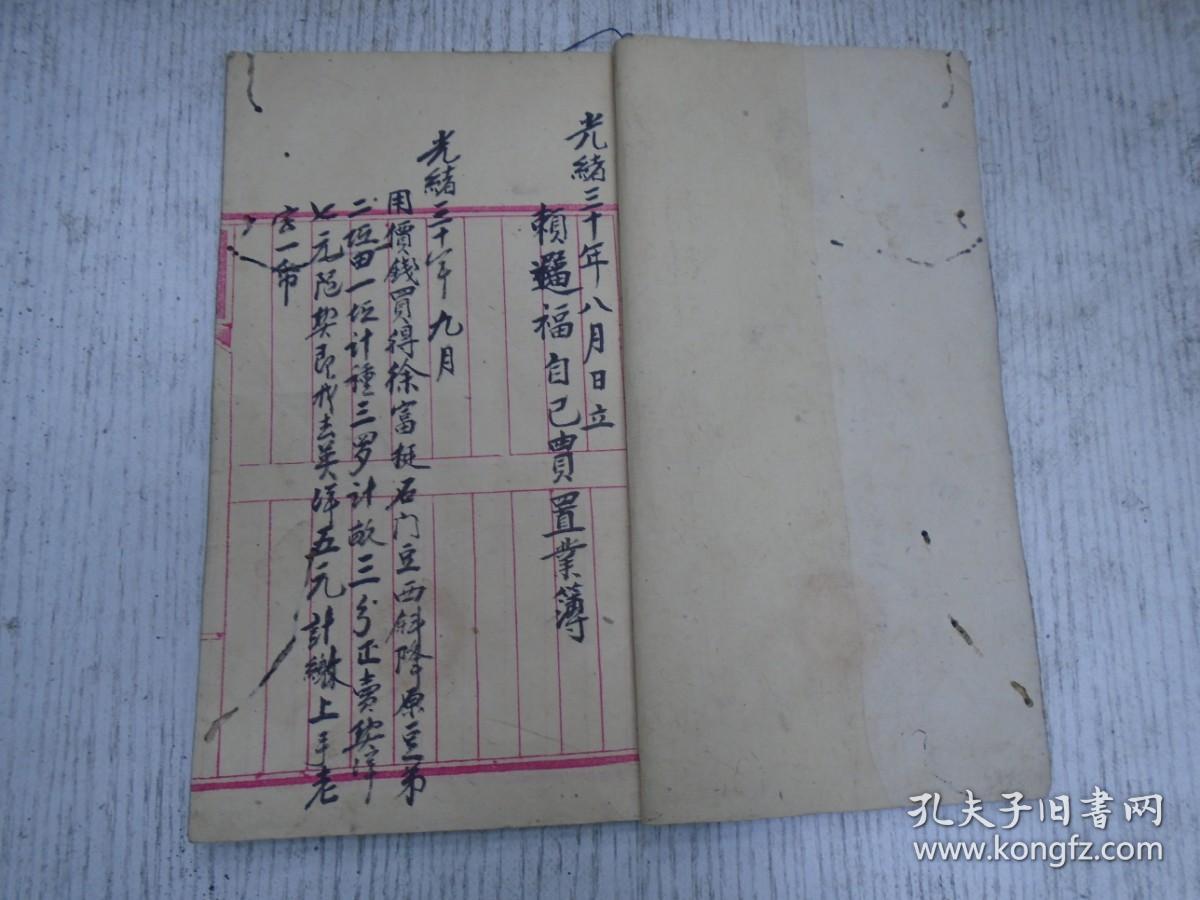 光緒三十年八月日立
賴福自己買置業簿
光緒三十年九月
用價錢買得徐富挺石门豆西斜降原豆弟
二坵田一坵計種三罗計畝三分正賣契洋
七元契即找去英洋五元計繳上手老
一帋
孔夫子旧书网
www.kongfz.com